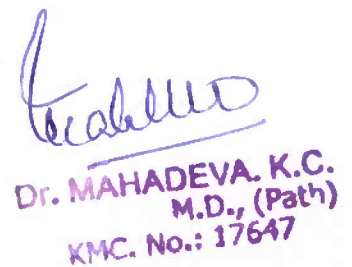 Dr. MAHADEVA. K.C.
M.D., (Path)
KMC. No.: 17647